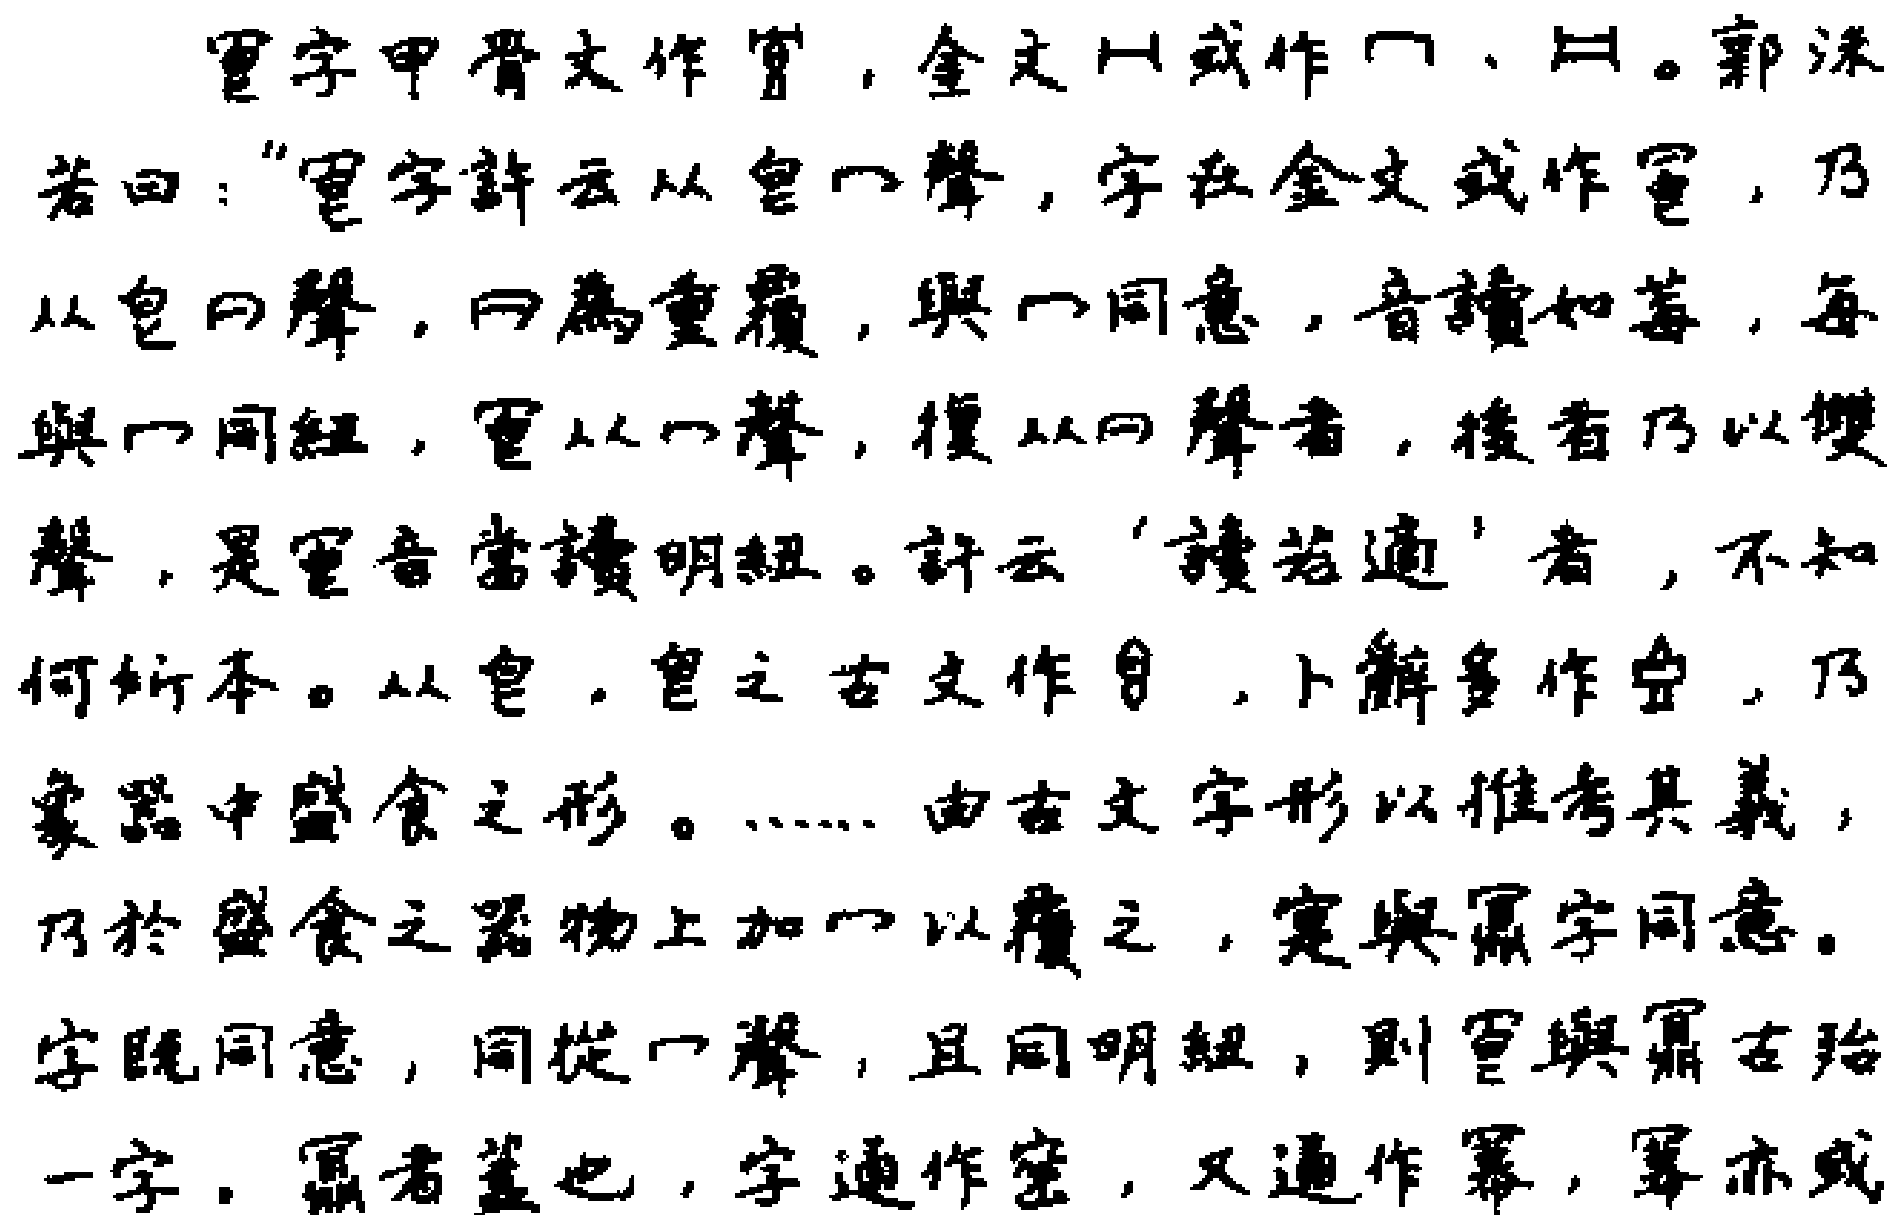 冟字甲骨文作，金文冂或作冖、。郭沫
若曰："冟字許云从皀冖聲，字在金文或作冟，乃
从皀冃聲，冃為重覆，與冖同意，音讀如莓，每
與冖同紐，冟从冖聲，復从冃聲者，後者乃以雙
聲，是冟音當讀明紐。許云'讀若適'者，不知
何所本。从皀，皀之古文作，卜辭多作，乃
象器中盛食之形。……由古文字形以推考其義，
乃於盛食之器物上加冖以覆之，寔與鼏字同意。
字既同意，同從冖聲，且同明紐，則冟與鼏古殆
一字。鼏者蓋也，字通作密，又通作冪，冪亦或